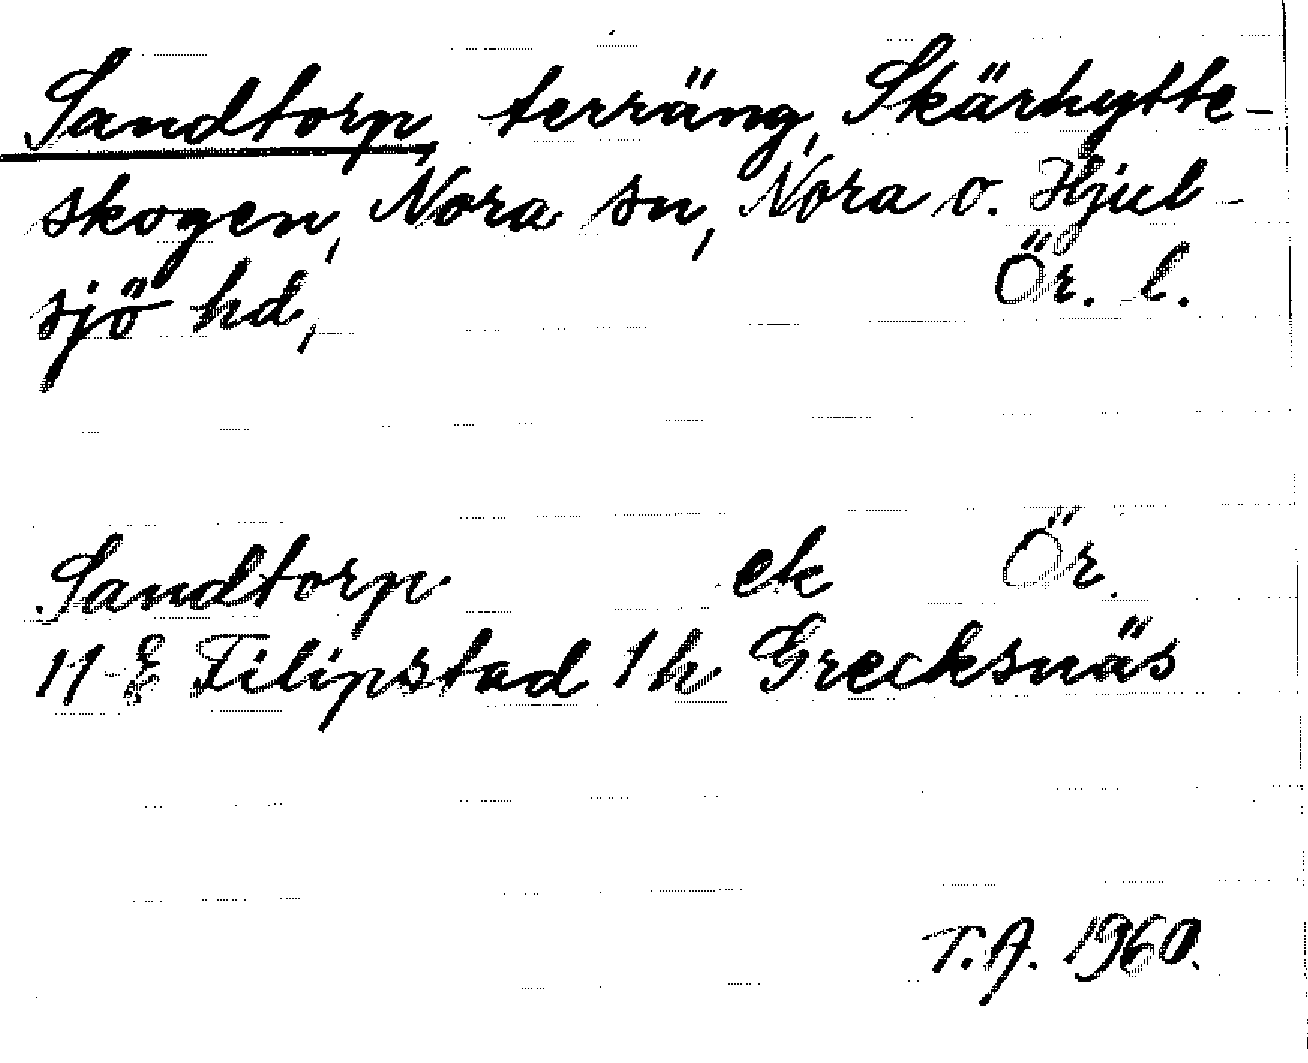 Sandtorp, terräng, Skärhytte-
skogen, Nora sn, Nora o. Hjul-
sjö hd, Ör. l.
Sandtorp ek Ör.
11 E Filipstad 1 h Grecksnäs
T.A. 1960.